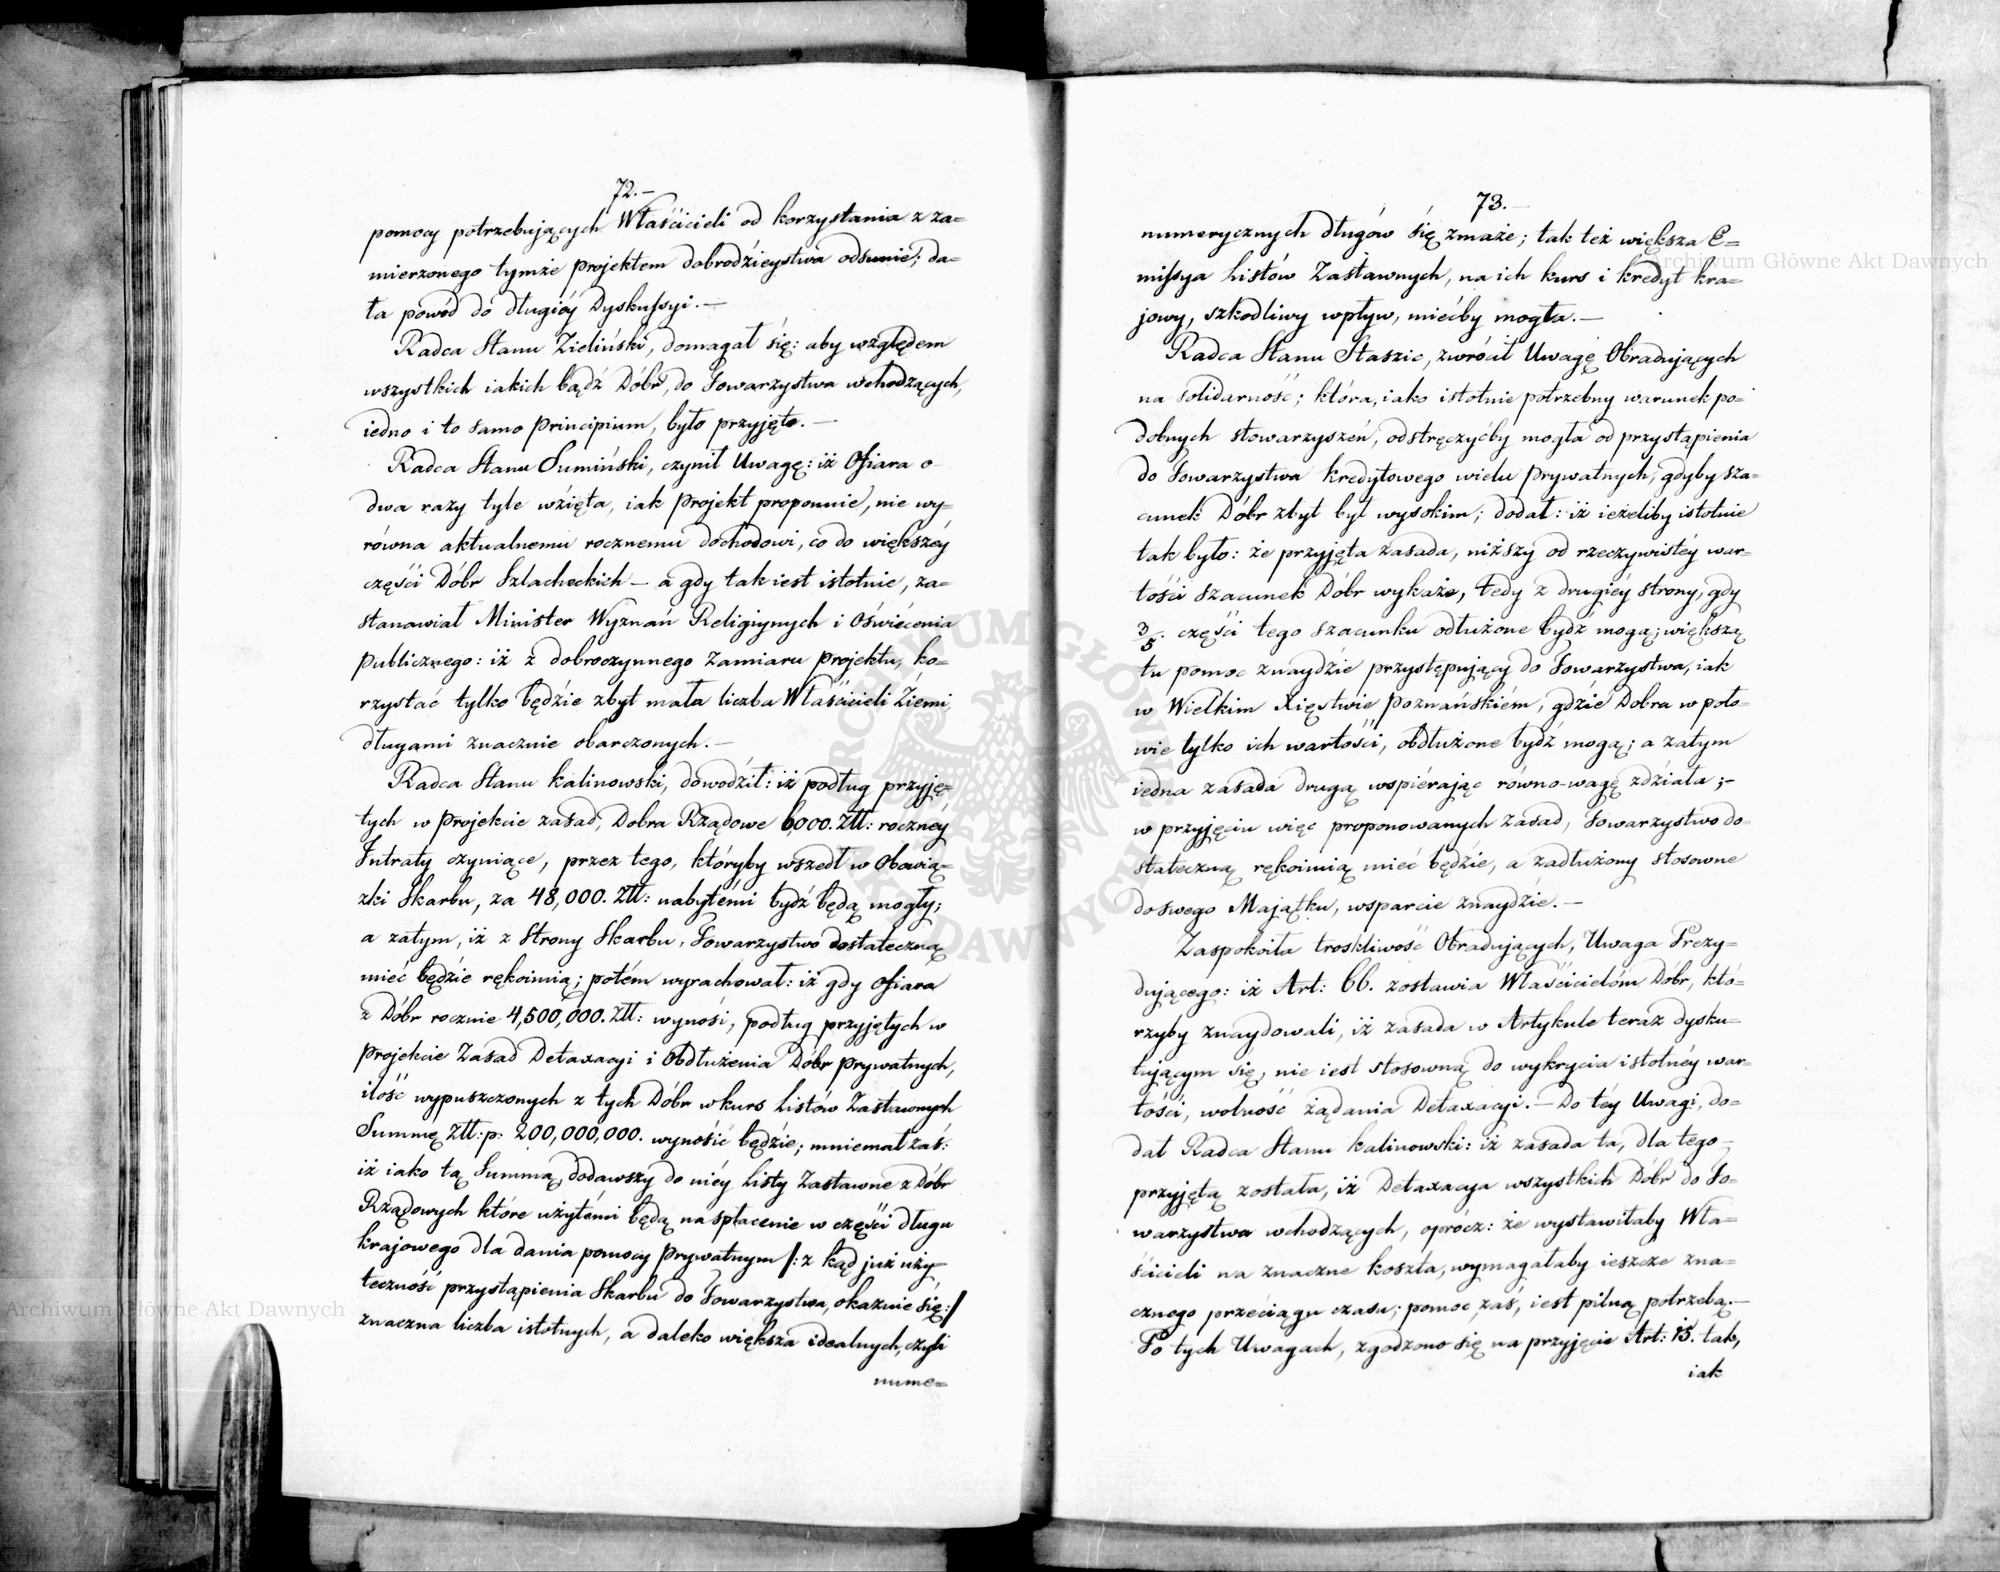 72.—
pomocy potrzebujących Właścicieli od korzystania z za=
mierzonego tymże projektem dobrodzieystwa odsunie; da=
ła powód do długiéy Dyskussyi.—
Radca Stanu Zieliński, domagał się: aby względem
wszystkich iakich bądź Dóbr, do Towarzystwa wchodzących,
iedno i to samo principium, było przyjęte.—
Radca Stanu Sumiński, czynił Uwagę: iż Ofiara o
dwa razy tyle wzięta, iak projekt proponuie, nie wy=
równa aktualnemu rocznemu dochodowi, co do większéy
części Dóbr Szlacheckich — a gdy tak iest istotnie, za=
stanawiał Minister Wyznań Religiynych i Oświécenia
publicznego: iż z dobroczynnego zamiaru projektu, ko=
rzystać tylko będzie zbyt mała liczba Właścicieli Ziemi,
długami znacznie obarczonych.—
Radca Stanu Kalinowski, dowodził: iż podług przyję=
tych w projekcie zasad, Dobra Rządowe 6000. Złł: rocznéy
Intraty czyniące, przez tego, któryby wszedł w Obowią=
zki Skarbu, za 48,000. Złł: nabytémi bydź będą mogły;
a zatym, iż z Strony Skarbu, Towarzystwo dostateczną
mieć będzie rękoimią; potém wyrachował: iż gdy Ofiara
z Dóbr rocznie 4,500,000. Złł: wynosi, podług przyjętych w
projekcie Zasad Detaxacyi i Obdłużenia Dóbr prywatnych,
ilość wypuszczonych z tych Dóbr w kurs Listów Zastawnych
Summę Złł:p: 200,000,000. wynosić będzie; mniemał zaś:
iż iako tą Summą, dodawszy do niéy Listy Zastawne z Dóbr
Rządowych które użytémi będą na spłacenie w części długu
krajowego dla dania pomocy prywatnym /: z kąd już uży=
teczność przystąpienia Skarbu do Towarzystwa, okazuie się :/
znaczna liczba istotnych, a daleko większa idealnych, czyli
nume=
73.—
numerycznych długów się zmaże; tak też większa E=
missya Listów Zastawnych, na ich kurs i kredyt kra=
jowy, szkodliwy wpływ, miećby mogła.—
Radca Stanu Staszic, zwrócił Uwagę Obradujących
na solidarność; która, iako istotnie potrzebny warunek po=
dobnych stowarzyszeń, odstręczyćby mogła od przystąpienia
do Towarzystwa kredytowego wielu prywatnych, gdyby sza=
cunek Dóbr zbyt był wysokim; dodał: iż ieżeliby istotnie
tak było: że przyjęta zasada, niższy od rzeczywistéy war=
tości szacunek Dóbr wykaże, tedy z drugiéy strony, gdy
3/5. części tego szacunku odłużone bydź mogą; większą
tu pomoc znaydzie przystępujący do Towarzystwa, iak
w Wielkim Xięstwie Poznańskiém, gdzie Dobra w poło=
wie tylko ich wartości, obdłużone bydź mogą; a zatym
iedna zasada drugą wspiérając równo-wagę zdziała;—
w przyjęciu więc proponowanych zasad, Towarzystwo do=
stateczną rękoimią mieć będzie, a zadłużony stosowne
do swego Majątku, wsparcie znaydzie.—
Zaspokoiła troskliwość Obradujących, Uwaga Prezy=
dującego: iż Art: 66. zostawia Właścicielóm Dóbr, któ=
rzyby znaydowali, iż zasada w Artykule teraz dysku=
tującym się, nie iest stosowną do wykrycia istotnéy war=
tości, wolność żądania Detaxacyi.— Do téy Uwagi, do=
dał Radca Stanu Kalinowski: iż zasada ta, dla tego
przyjętą została, iż Detaxacya wszystkich Dóbr do To=
warzystwa wchodzących, oprócz: że wystawiłaby Wła=
ścicieli na znaczne koszta, wymagałaby ieszcze zna=
cznego przeciągu czasu; pomoc zaś, iest pilną potrzebą.—
Po tych Uwagach, zgodzono się na przyjęcie Art: 15. tak,
iak
Archiwum Główne Akt Dawnych
Archiwum Główne Akt Dawnych
ARCHIWUM GŁÓWNE AKT DAWNYCH